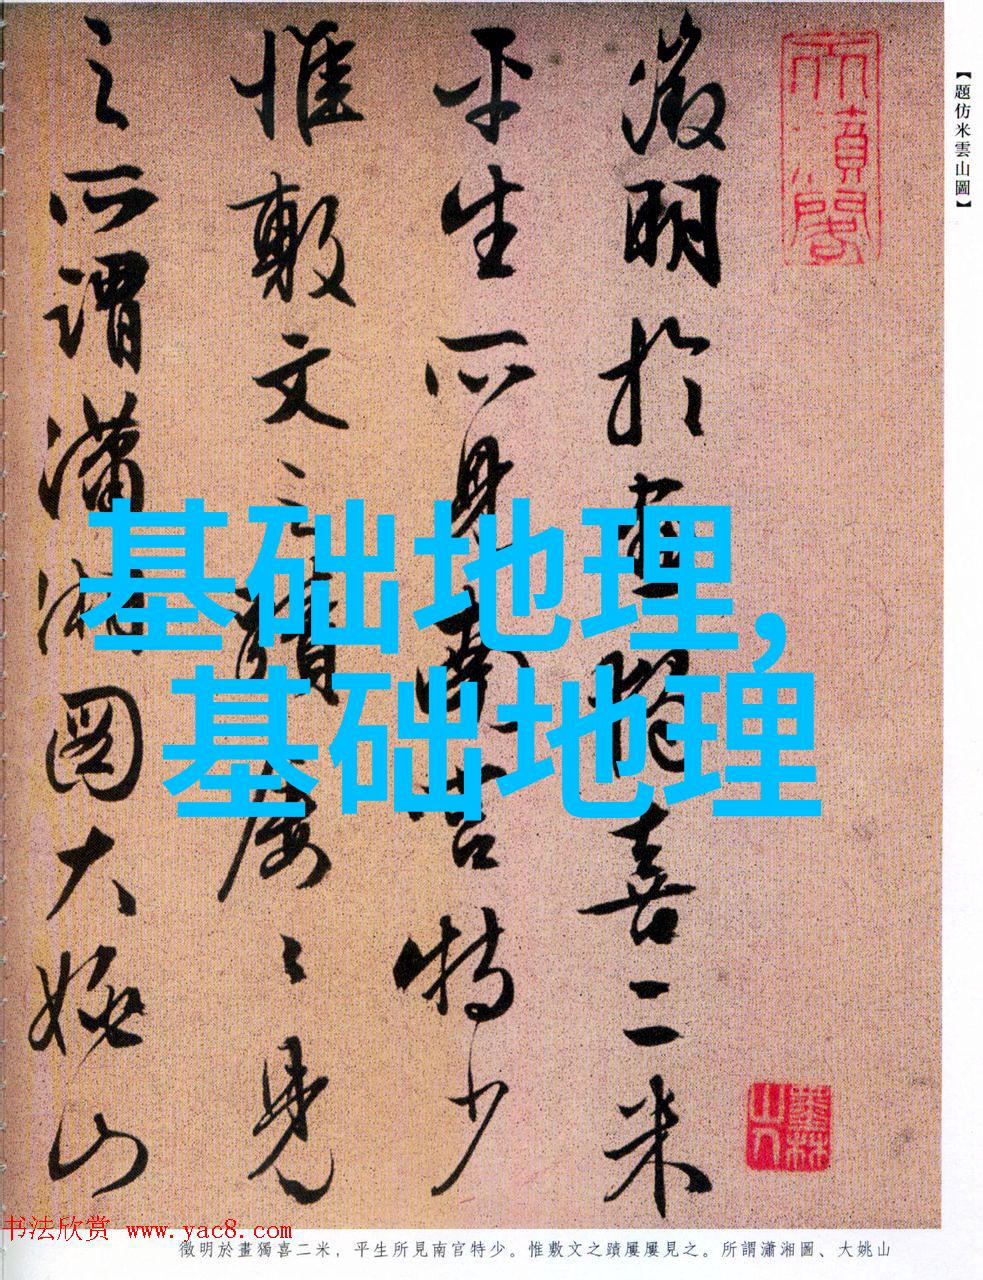 【題仿米雲山圖】
徵明於畫獨喜二米
平生所見南宮特少
惟敷文之蹟屢〻見
之所謂瀟湘圖大姚山
墨林山人
基础地理,
基础地理
书法欣赏 www.yac8.com
徵明於畫獨喜二米，平生所見南官特少。惟敷文之蹟屢屢見之。所謂瀟湘圖、大姚山